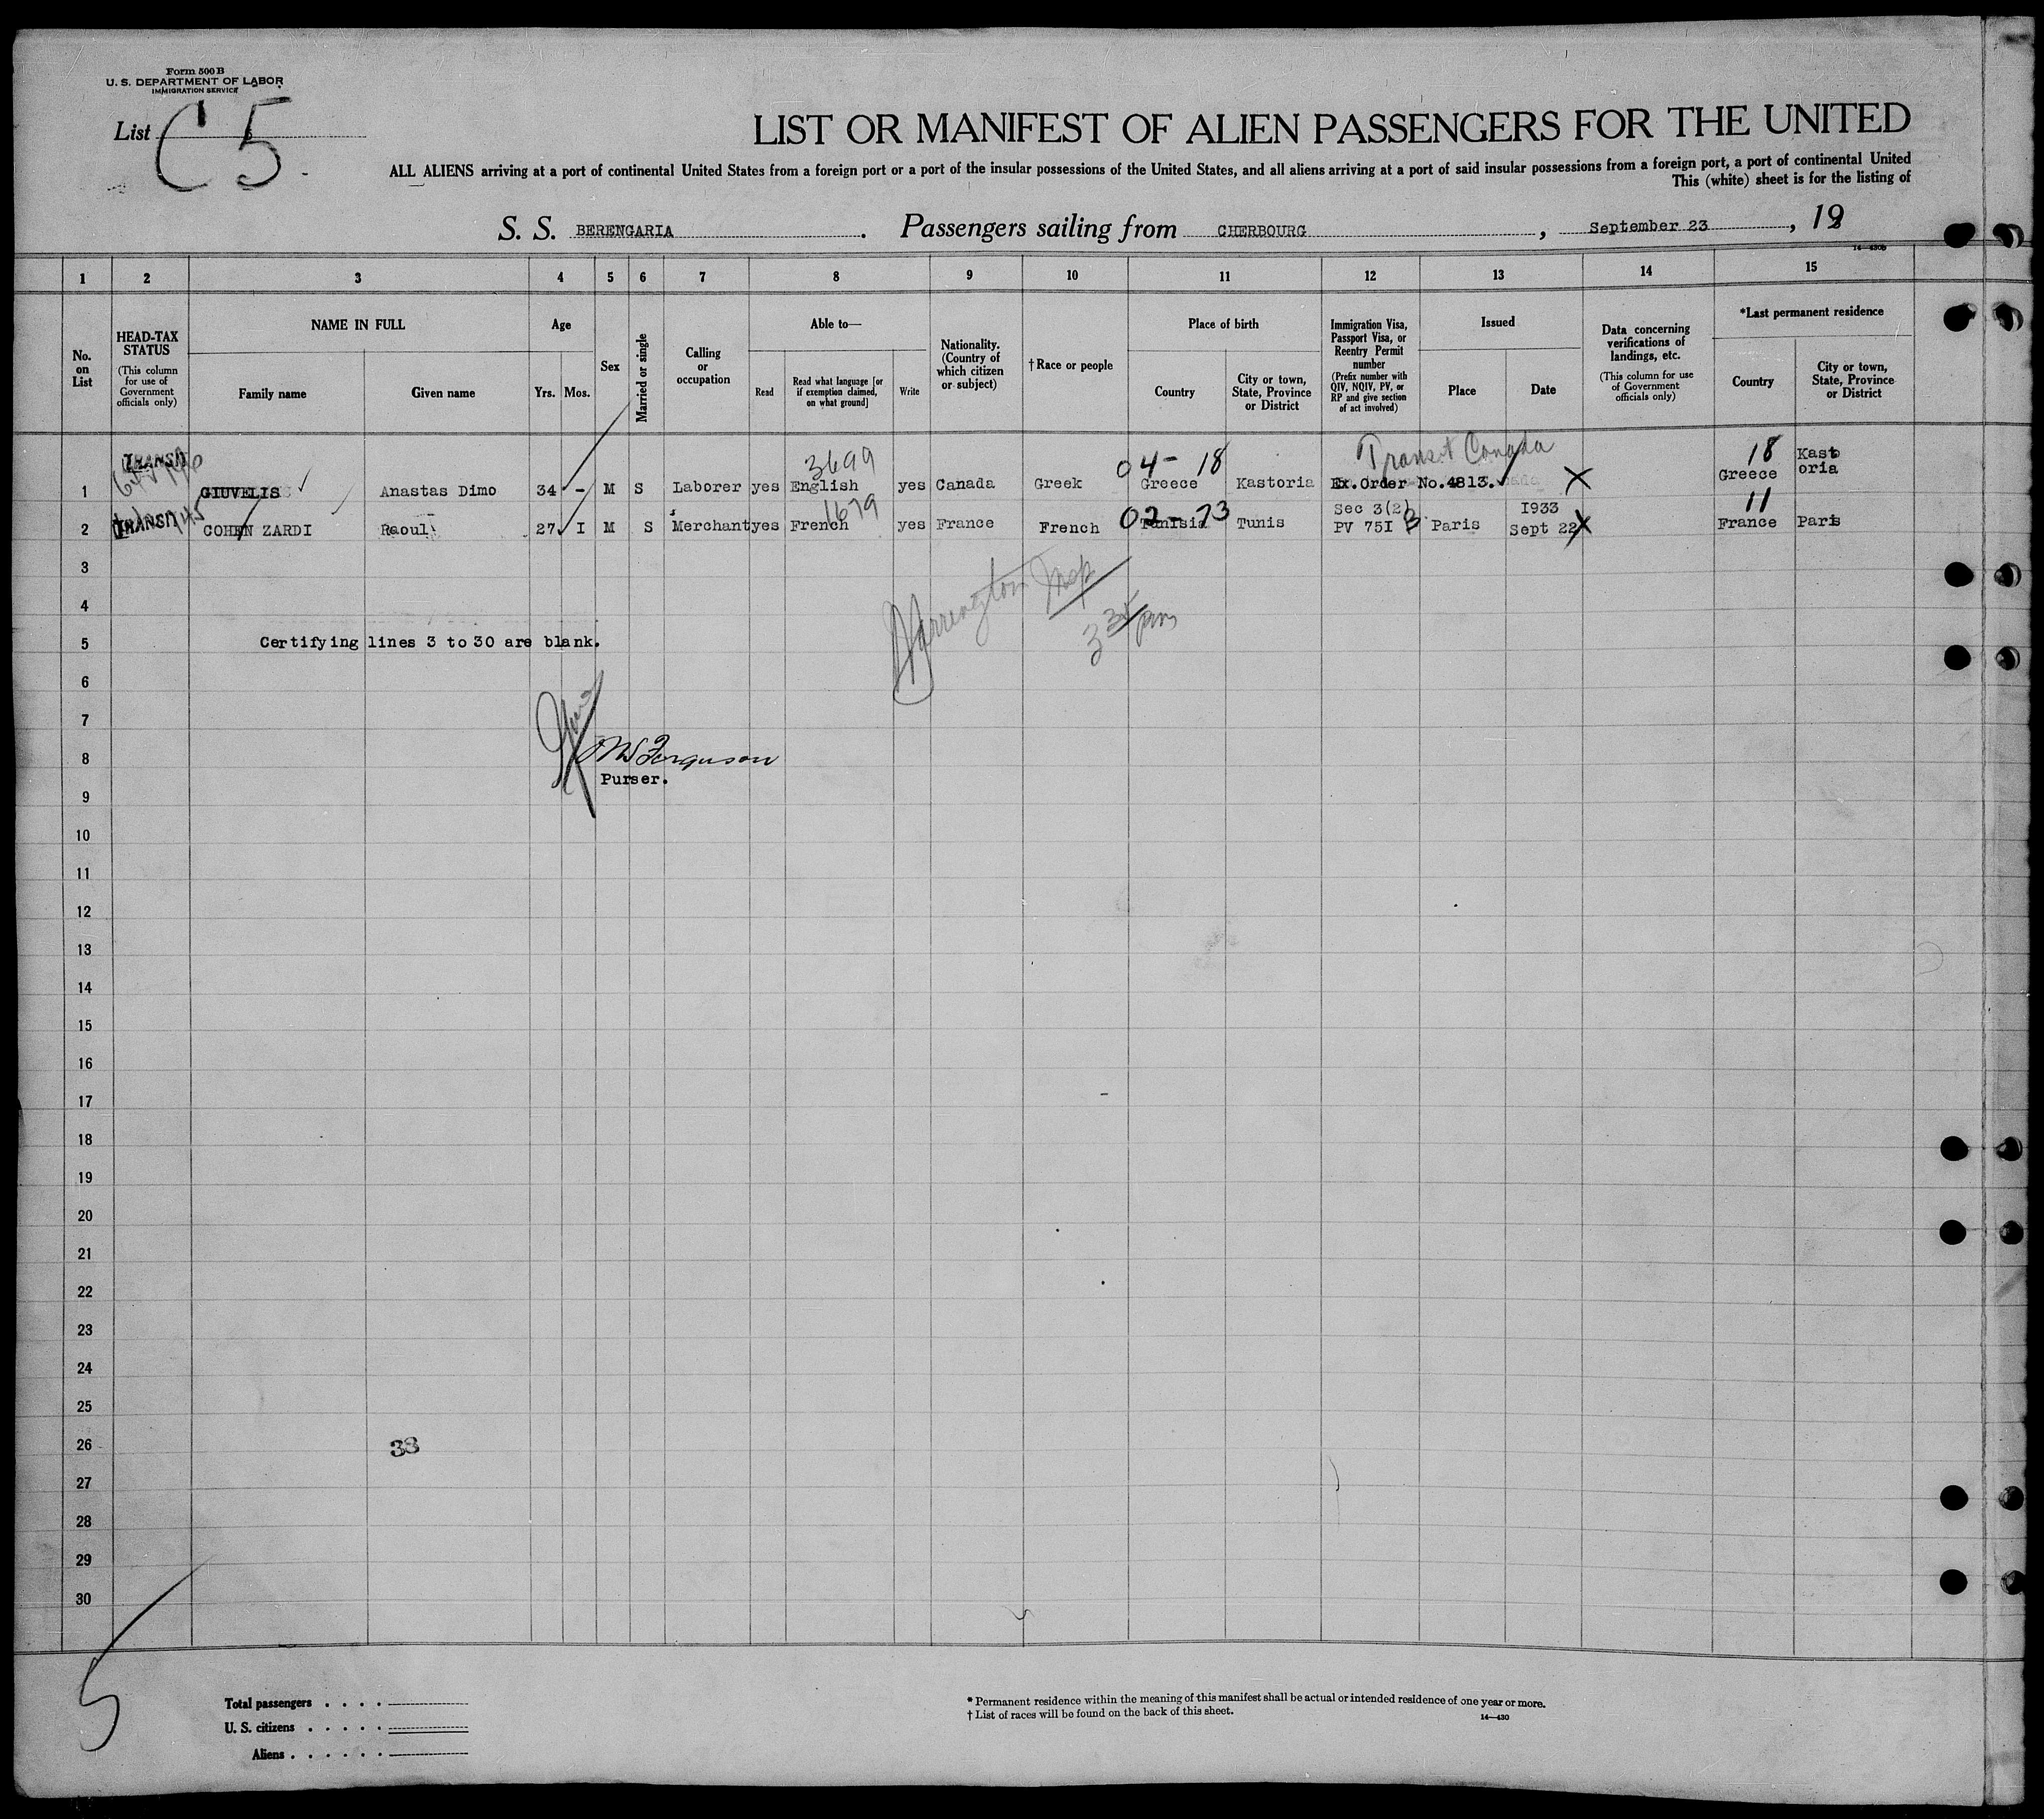 Form 500 B
U. S. DEPARTMENT OF LABOR
IMMIGRATION SERVICE
List C 5
LIST OR MANIFEST OF ALIEN PASSENGERS FOR THE UNITED
ALL ALIENS arriving at a port of continental United States from a foreign port or a port of the insular possessions of the United States, and all aliens arriving at a port of said insular possessions from a foreign port, a port of continental United
This (white) sheet is for the listing of
S. S. BERENGARIA. Passengers sailing from CHERBOURG, September 23, 19
14—430b
1 2 3 4 5 6 7 8 9 10 11 12 13 14 15
No. on List
HEAD-TAX STATUS
(This column for use of Government officials only)
NAME IN FULL
Family name Given name
Age
Yrs. Mos.
Sex
Married or single
Calling or occupation
Able to—
Read Read what language [or if exemption claimed, on what ground] Write
Nationality. (Country of which citizen or subject)
†Race or people
Place of birth
Country City or town, State, Province or District
Immigration Visa, Passport Visa, or Reentry Permit number
(Prefix number with QIV, NQIV, PV, or RP and give section of act involved)
Issued
Place Date
Data concerning verifications of landings, etc.
(This column for use of Government officials only)
*Last permanent residence
Country City or town, State, Province or District
TRANSIT 3699 04- 18 Transit Canada 18 Kast
1 GIUVELIS Anastas Dimo 34 - M S Laborer yes English yes Canada Greek Greece Kastoria Ex.Order No.4813. X Greece oria
TRANSIT 1679 02- 73 Sec 3(2) 1933 11
2 COHEN ZARDI Raoul 27 I M S Merchant yes French yes France French Tunisia Tunis PV 75I B Paris Sept 22 X France Paris
3
Harrington Insp
4
3 35 pm
5 Certifying lines 3 to 30 are blank.
6
7
8 Ferguson
Purser.
9
10
11
12
13
14
15
16
17
18
19
20
21
22
23
24
25
26 38
27
28
29
30
5
Total passengers . . . .
U. S. citizens . . . . .
Aliens . . . . . .
* Permanent residence within the meaning of this manifest shall be actual or intended residence of one year or more.
† List of races will be found on the back of this sheet.
14—430